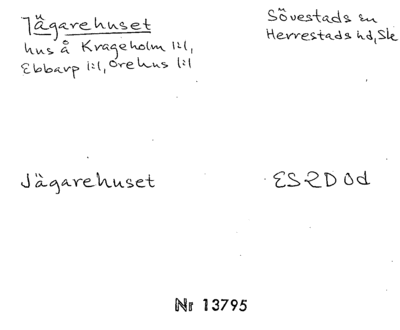 Jägarehuset
hus å Krageholm 1:1,
Ebbarp 1:1, Orehus 1:1
Sövestads sn
Herrestads hd, Sk
Jägarehuset
ES2D0d
Nr 13795